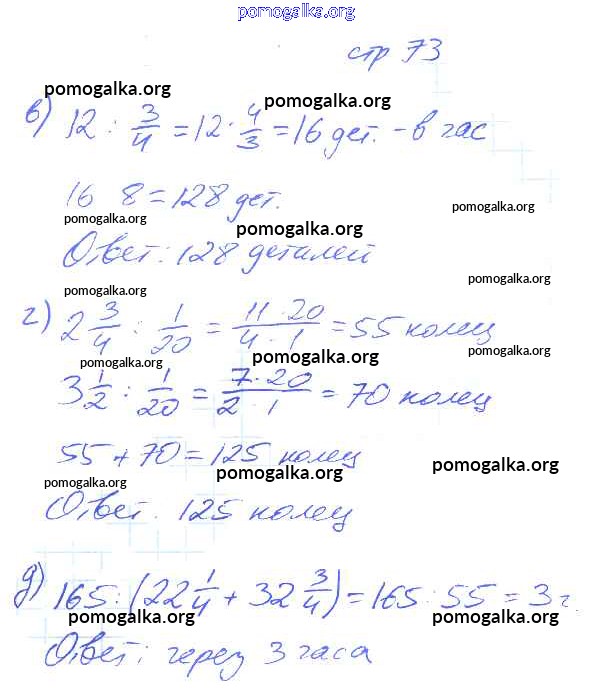 pomogalka.org
стр 73
pomogalka.org pomogalka.org
в) 12 : 3/4 = 12 · 4/3 = 16 дет. - в час
16 8 = 128 дет.
pomogalka.org pomogalka.org pomogalka.org
Ответ: 128 деталей
pomogalka.org pomogalka.org
г) 2 3/4 : 1/20 = 11 · 20 / 4 · 1 = 55 колец
pomogalka.org pomogalka.org pomogalka.org
3 1/2 : 1/20 = 7 · 20 / 2 · 1 = 70 колец
55 + 70 = 125 колец
pomogalka.org pomogalka.org pomogalka.org
Ответ. 125 колец
д) 165 : (22 1/4 + 32 3/4) = 165 : 55 = 3 г.
pomogalka.org pomogalka.org pomogalka.org
Ответ: через 3 часа